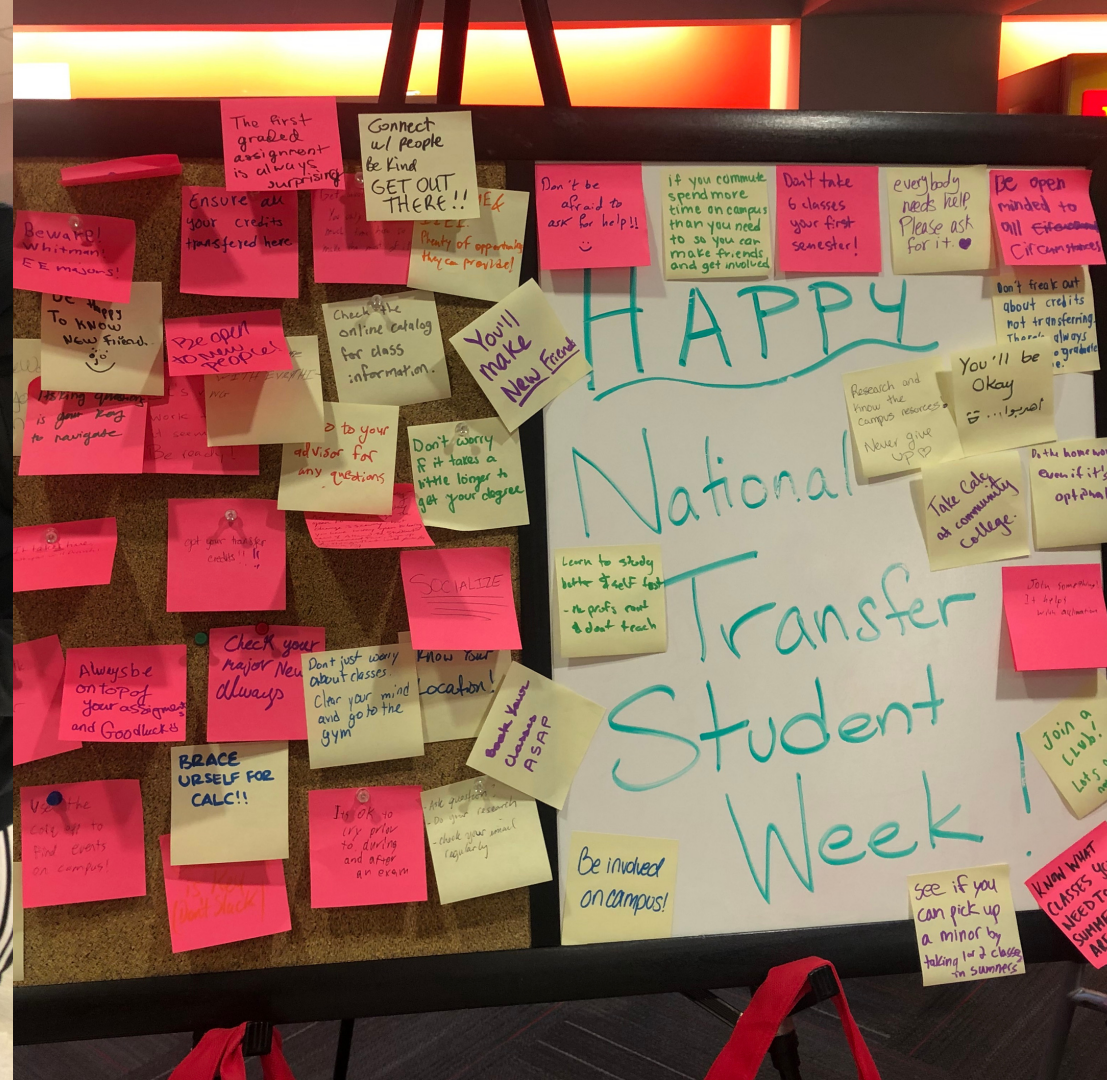 The first
graded
assignment
is always
surprising
Connect
w/ people
Be Kind
GET OUT
THERE!!
Ensure all
your credits
transfered here
Plenty of opportunity
they can provide!
Beware!
Whitman!
EE majors!
Be Happy
To Know
New Friend.
Be open
to new
people!
Check the
online catalog
for class
information.
You'll
make
New Friend
Asking questions
is your key
to navigate
to your
advisor for
any questions
Don't worry
if it takes a
little longer to
get your degree
got your transfer
credits!!
SOCIALIZE
Always be
on top of
your assignments
and Goodluck
Check your
major New
always
Dont just worry
about classes
Clear your mind
and go to the
gym
Know Your
Location!
Book Your
classes
ASAP
BRACE
URSELF FOR
CALC!!
Use the
to
find events
on campus!
Its ok to
cry prior
to during
and after
an exam
- Ask question
- Do your research
- check your email
regularly
is Key
Don't be
afraid to
ask for help!!
if you commute
spend more
time on campus
than you need
to so you can
make friends
and get involved
Don't take
6 classes
your first
semester!
everybody
needs help
Please ask
for it.
Be open
minded to
all
Circumstances
Don't freak out
about credits
not transferring.
There's always
HAPPY
National
Transfer
Student
Week!
Research and
know the
campus resources.
Never give
up
You'll be
Okay
Take Calc
at community
college.
Do the homework
even if it's
optional
Learn to study
better & self
- profs
& dont teach
Join something!
It helps
with
Join a
CLUB!
Lots
Be involved
on campus!
see if you
can pick up
a minor by
taking 1 or 2 classes
in summers
KNOW WHAT
CLASSES
NEED TO